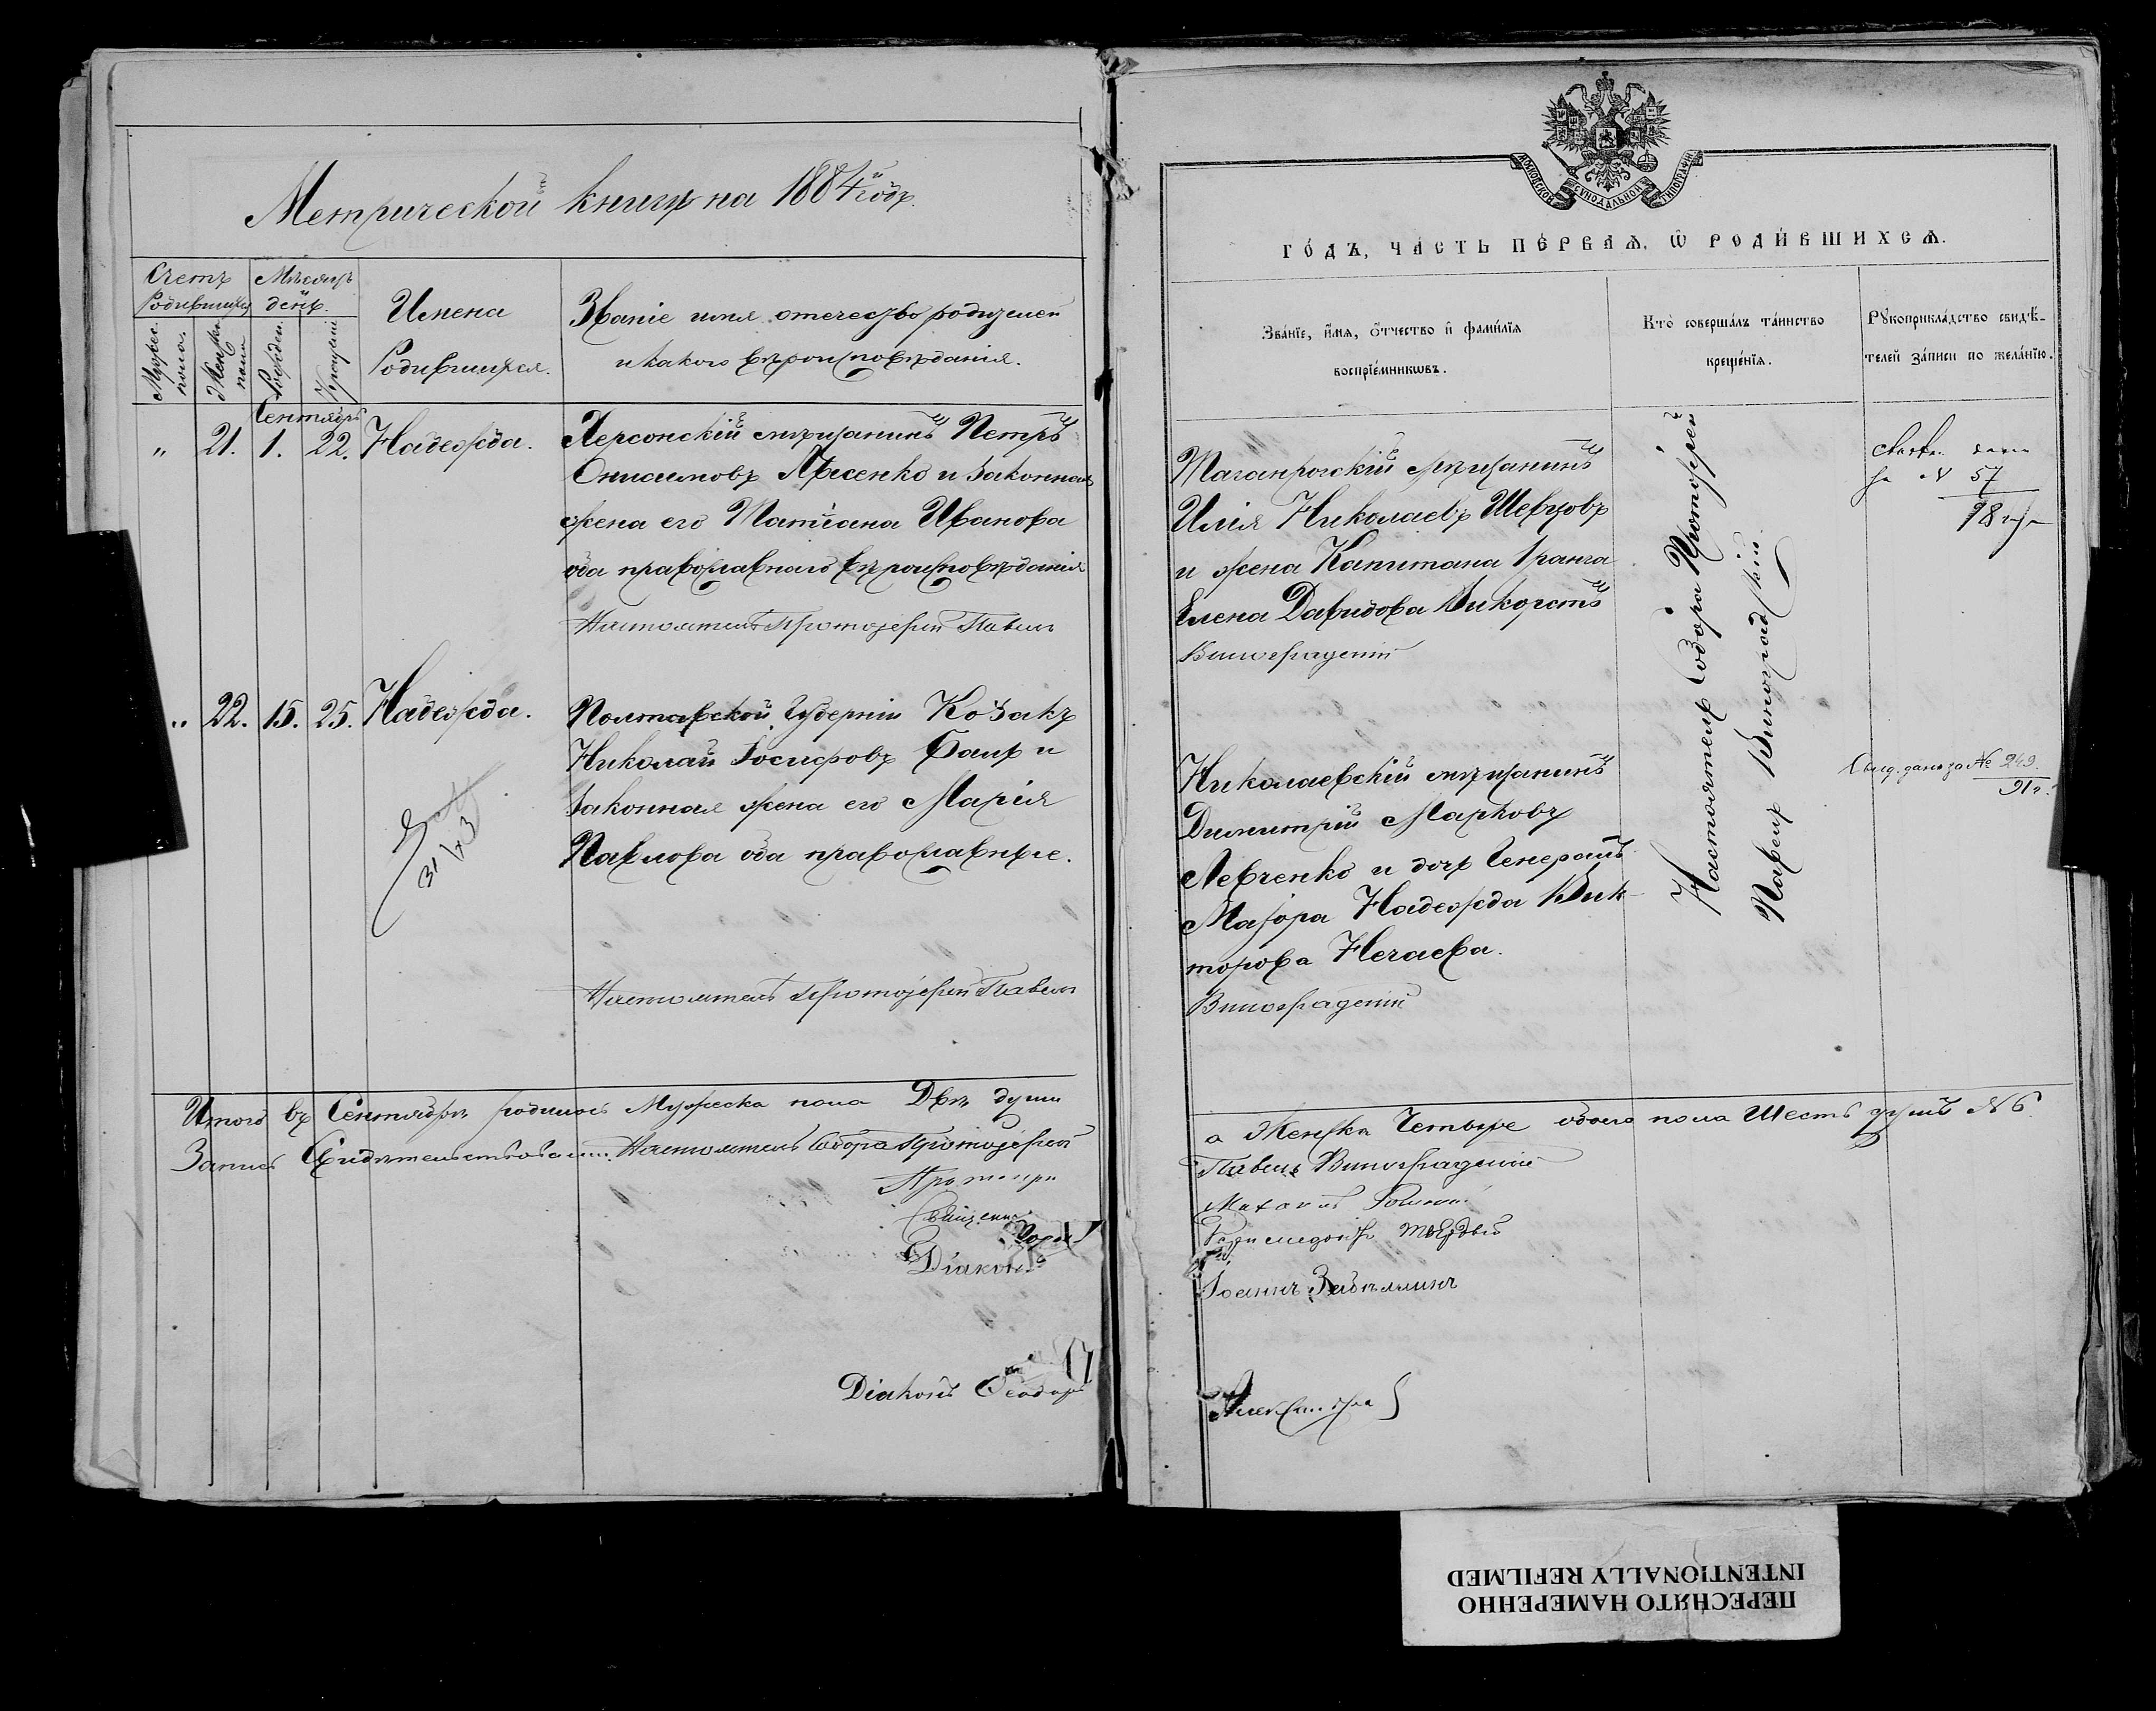 Метрической книги на 1884 годъ.
Счетъ Родившихся
Мѣсяцъ день.
Мужес. пола.
Женск. пола
Рожден.
Крещенія
Имена Родившихся.
Званіе имя отечество родителей
и какого вѣроисповѣданія.
Сентябрь
" 21. 1. 22. Надежда.
Херсонскій мѣщанинъ Петръ
Онисимовъ Лысенко и законная
жена его Татіана Иванова
оба православнаго вѣроисповѣданія
Настоятель Протоіерей Павелъ
" 22. 15. 25. Надежда.
Полтавской губерніи Козакъ
Николай Іосифовъ Баиръ и
законная жена его Марія
Павлова оба православные.
Настоятель Протоіерей Павелъ
Итого въ Сентябрѣ родилось Мужеска пола Двѣ души
Запись Свидѣтельствовали: Настоятель Собора Протоіерей
Протоіерей
Священникъ
Діаконъ
Діаконъ Ѳеодоръ
МОСКОВСКОЙ СѴНОДАЛЬНОЙ ТИПОГРАФІИ
ГО́ДЪ, ЧА́СТЬ ПЕ́РВАѦ, Ѡ҆ РОДИ́ВШИХСѦ.
Зва́нїе, и҆́мѧ, ѻ҆́тчество и҆ фами́лїѧ
воспрїе́мникѡвъ.
Кто̀ соверша́лъ та́инство
креще́нїѧ.
Рꙋкоприкла́дство свидѣ́-
телей за́писи по жела́нїю.
Таганрогскій мѣщанинъ
Илія Николаевъ Шевцовъ
и жена Капитана 1 ранга
Елена Давидова Викорстъ
Виноградскій
Настоятель Собора Протоіерей
Павелъ Виноградскій
за № 57
98 г.
Николаевскій мѣщанинъ
Димитрій Марковъ
Левченко и дочь Генералъ
Маіора Надежда Вик-
торова Нечаева.
Виноградскій
Свид. дано за № 249.
91 г.
а Женска Четыре обоего пола Шесть душъ № 6.
Павелъ Виноградскій
Іоаннъ
ПЕРЕСНЯТО НАМЕРЕННО
INTENTIONALLY REFILMED